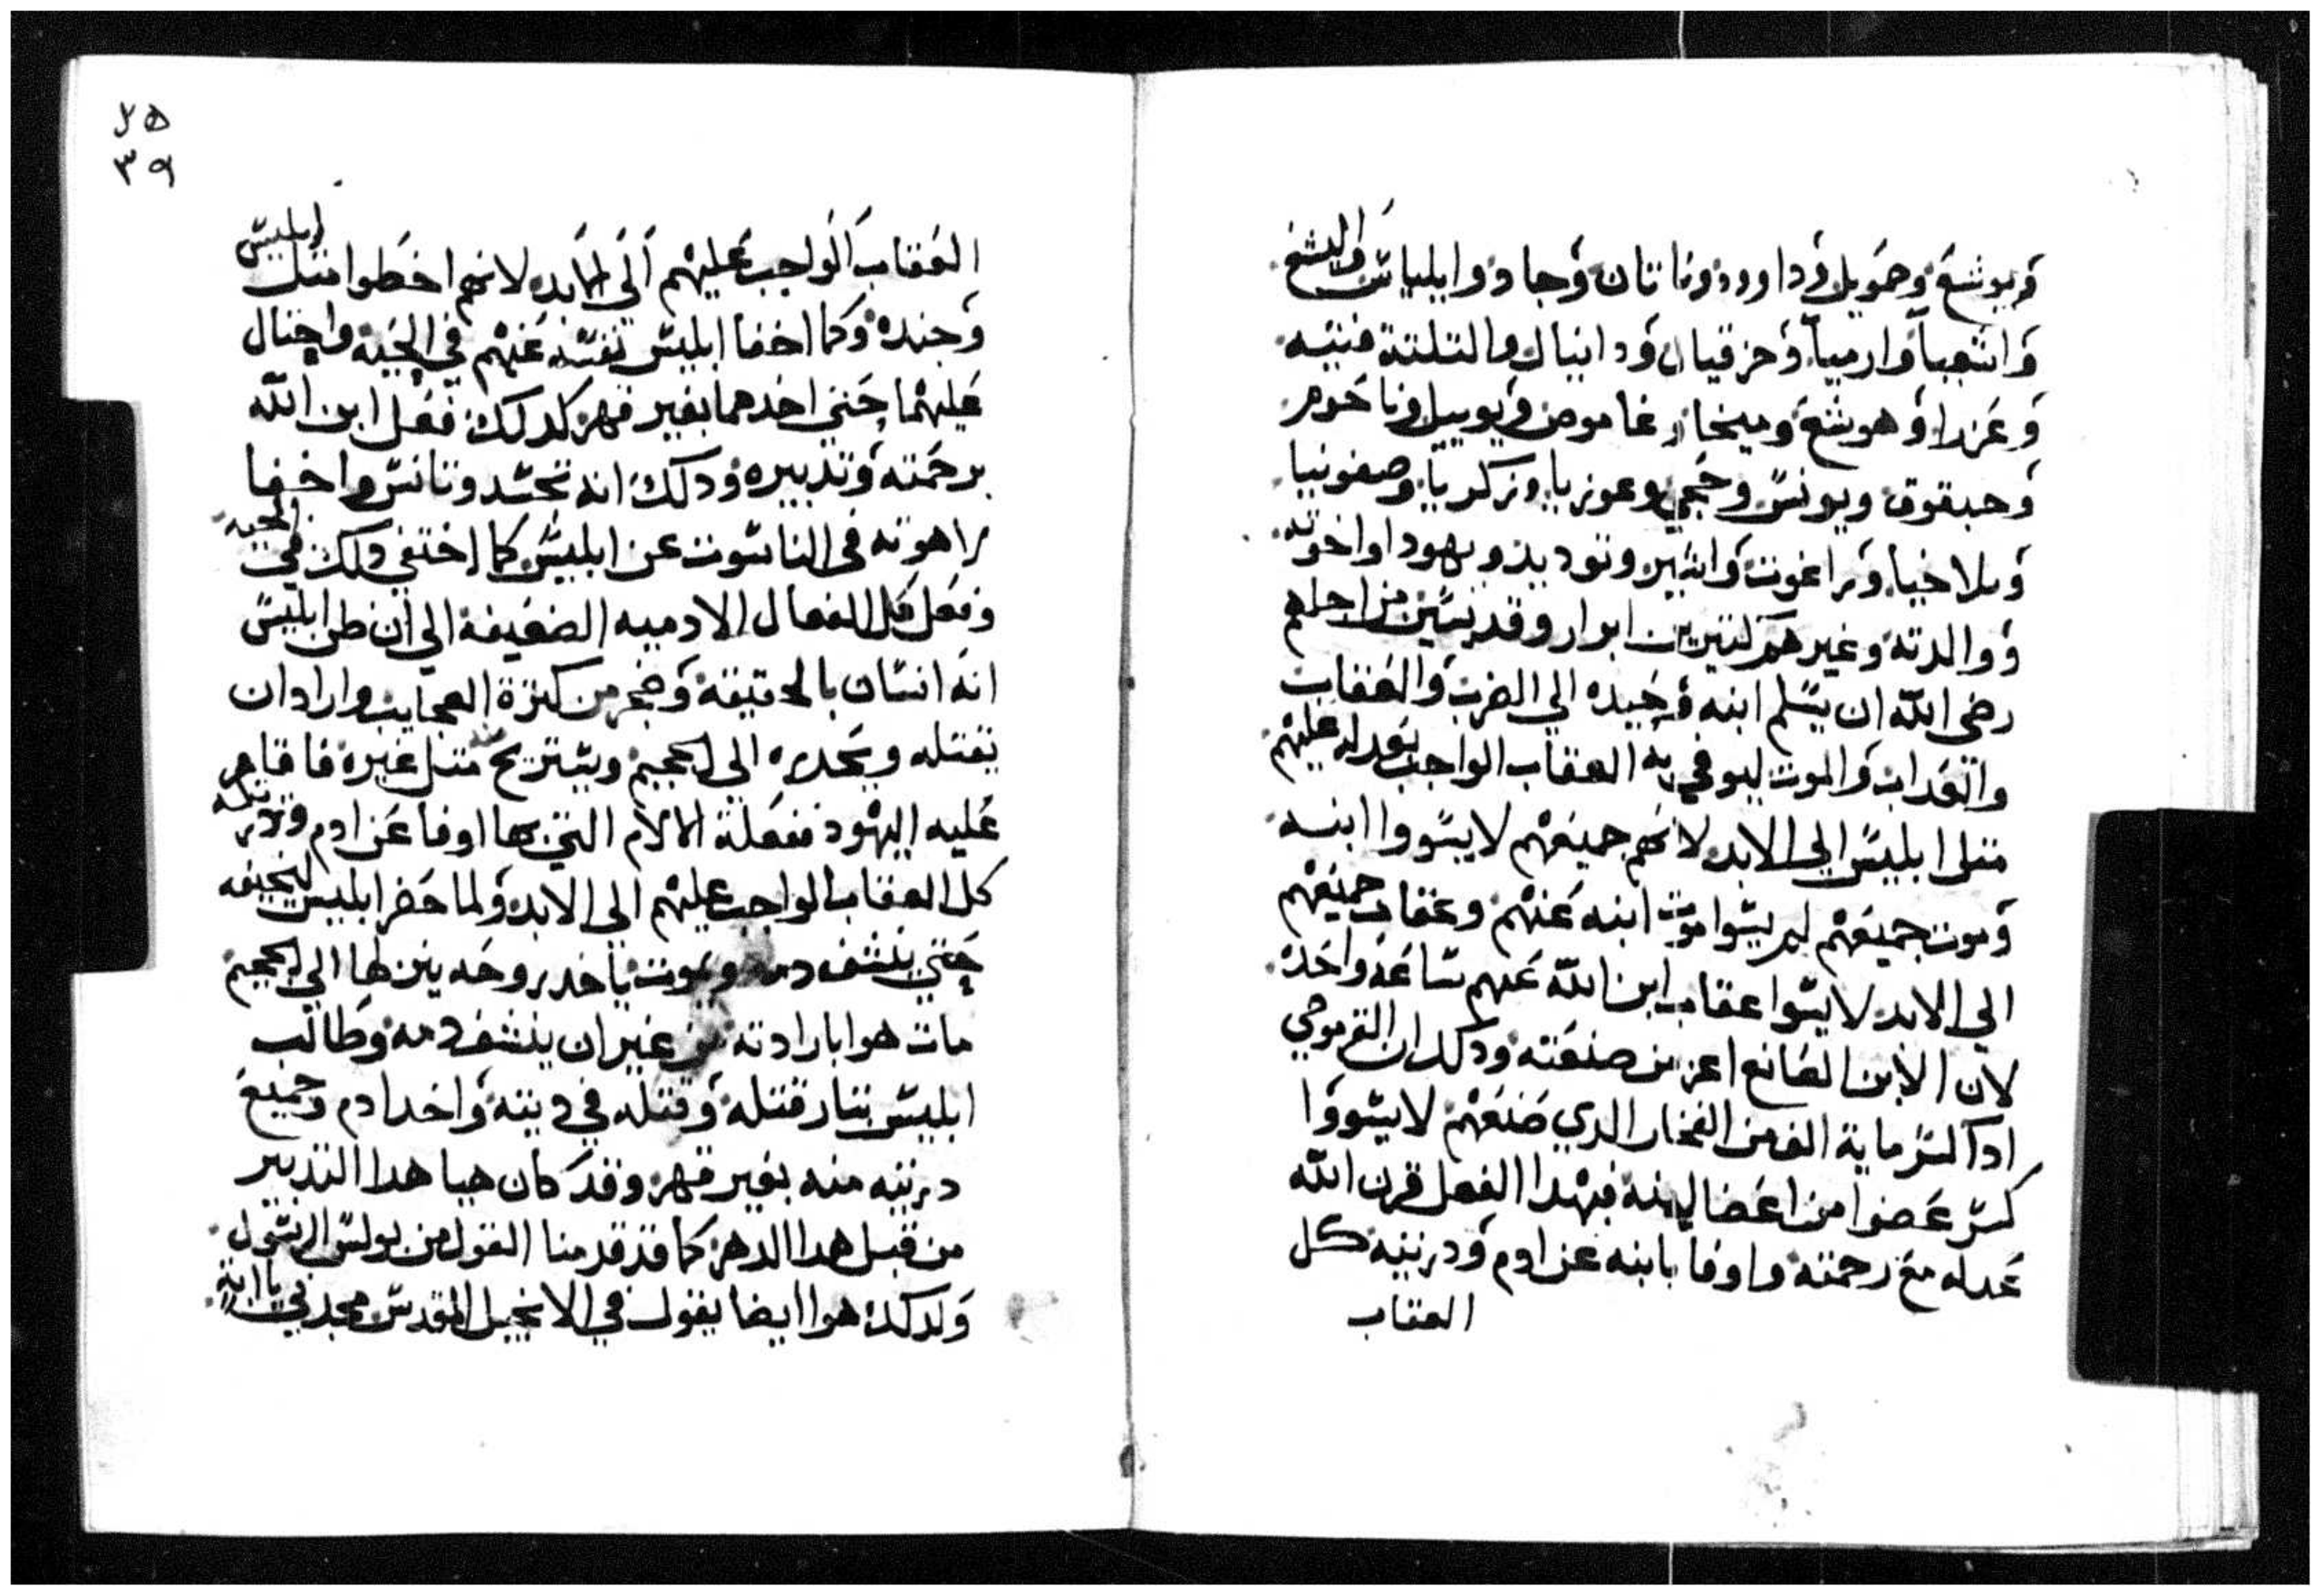 ويوشع وصمويل وداوود وناتان وجاد وايلياس واليشع
واشعيا وارميا وحزقيال ودانيال والتلتة فتيه
وعزرا وهوشع وميخا وعاموص ويوييل وناحوم
وحبقوق ويونس وحجي وعوزيا وزكريا وصفونيا
وملاخيا وراعوت واستير ويهوديد ويهودا واخوته
ووالدته وغيرهم كتيرين ابرار وقديسين من اجلهم
رضي الله ان يسلم ابنه وحيده الي الضرب والعقاب
والعداب والموت ليوفي به العقاب الواجب بعدله عليهم
متل ابليس الي الابد لانهم جميعهم لا يسووا ابنه
وموت جميعهم لم يسوا موت ابنه عنهم وعقاب جميعهم
الي الابد لا يسوا عقاب ابن الله عنهم ساعة واحده
لان الابن الصانع اعز من صنعته ودلك ان القرموصي
ادا كسر ماية الف من الفخار الدي صنعهم لا يسووا
كسر عضوا من اعضا ابنه فبهدا الفعل قرن الله
عدله مع رحمته واوفا بابنه عن ادم ودريته كل
العقاب
٣٩
العقاب الواجب عليهم الي الابد لانهم اخطوا متل ابليس
وجنده وكما اخفا ابليس نفسه عنهم في الحيه واحتال
عليهما حتي اخدهما بغير قهر كدلك فعل ابن الله
برحمته وتدبيره ودلك انه تجسد وتانس واخفا
لاهوته في الناسوت عن ابليس كما اختفي دلك في الحيه
وفعل كل الفعال الادميه الضعيفة الي ان ظن ابليس
انه انسان بالحقيقة وضجر من كترة العجايب واراد ان
يقتله ويحدره الي الجحيم ويستريح منه متل غيره فاقام
عليه اليهود ففعلة الالام التي بها اوفا عن ادم ودريته
كل العقاب الواجب عليهم الي الابد ولما حضر ابليس ليخيفه
حتي ينشف دمه ويموت ياخد روحه ينزلها الي الجحيم
مات هوا بارادته من غير ان ينشف دمه وطالب
ابليس بتار قتله وقتله في ديته واخد ادم وجميع
دريته منه بغير قهر وقد كان هيا هدا التدبير
من قبل هدا الدهر كما قد قدمنا القول من بولس الرسول
ولدلك هوا ايضا يقول في الانجيل المقدس مجدني يا ابتة